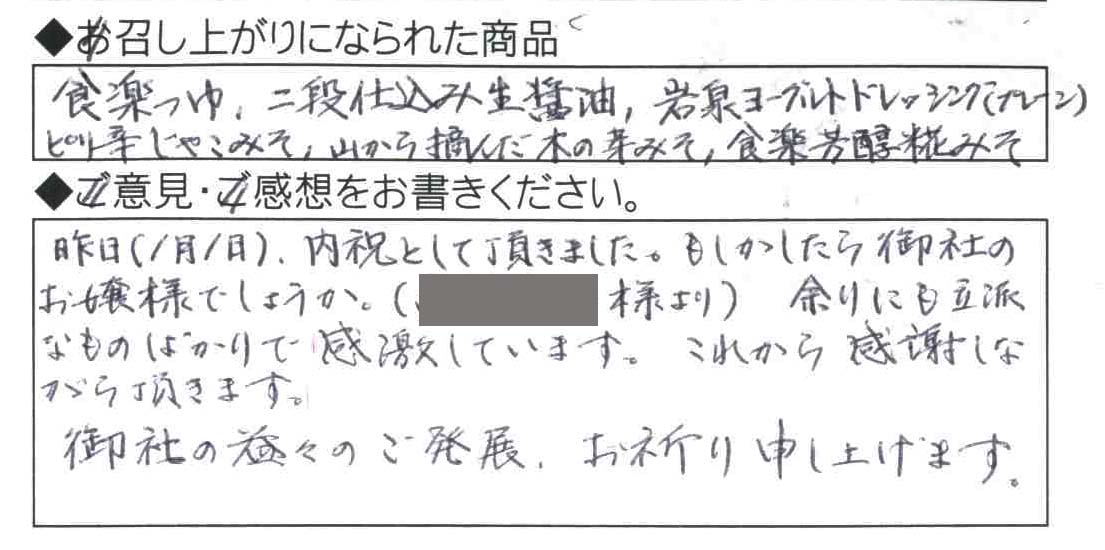 ◆お召し上がりになられた商品
食楽つゆ, 二段仕込み生醤油, 岩泉ヨーグルトドレッシング(プレーン)
ピリ辛じゃこみそ, 山から摘んだ木の芽みそ, 食楽芳醇糀みそ
◆ご意見・ご感想をお書きください。
昨日(1月1日)、内祝として頂きました。もしかしたら御社の
お嬢様でしょうか。( 様より) 余りにも立派
なものばかりで感激しています。これから感謝しな
がら頂きます。
御社の益々のご発展、お祈り申し上げます。